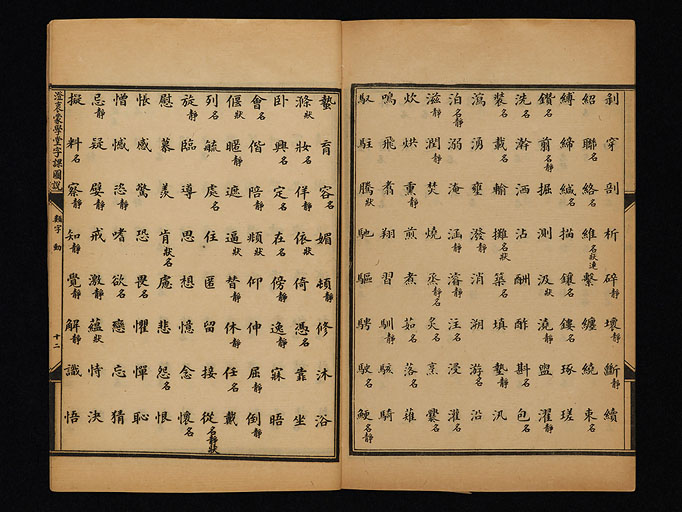 剝穿剖析碎靜壞靜斷靜續
紹聯名絡名維名狀連繫纏繞束名
縛締緘名描鑲名鏤名琢瑳
鑽名翦名靜掘測汲狀澆靜盥濯靜
洗名瀚洒沾酬酢斟名包名
裝名載名輸攤名狀築名填墊靜汎
瀉湧壅潑靜消溯游名沿
泊名靜溺淹涵靜濬靜注名浸灌名
滋靜潤靜焚燒烝靜名炙名烹爨名
炊烘熏靜煎煮茹名落名薙
鳴飛翥翔習馴靜駭騎
馭駐騰狀馳驅騁駛名鯁名靜
蟄育容名媚頓靜修沐浴
滌狀妝名佯靜依狀倚憑名靠坐
臥興名定名在名傍靜逸靜寐晤
會名偕陪靜頻狀仰伸屈靜倒靜
偃狀暱靜遮逼狀替靜休靜任名戴
列名毓處名住匿留接從名靜狀
旋靜臨導思想憶念懷名
慰慕羨肯狀名慮悲怨名恨
悵感驚恐畏名懼憚恥
憎憾恐靜嗜欲名戀忘猜
忌靜疑嬖靜戒激靜蘊狀恃決
擬料名察靜知靜覺靜解靜識悟
澄衷蒙學堂字課圖說
類字 動
十二